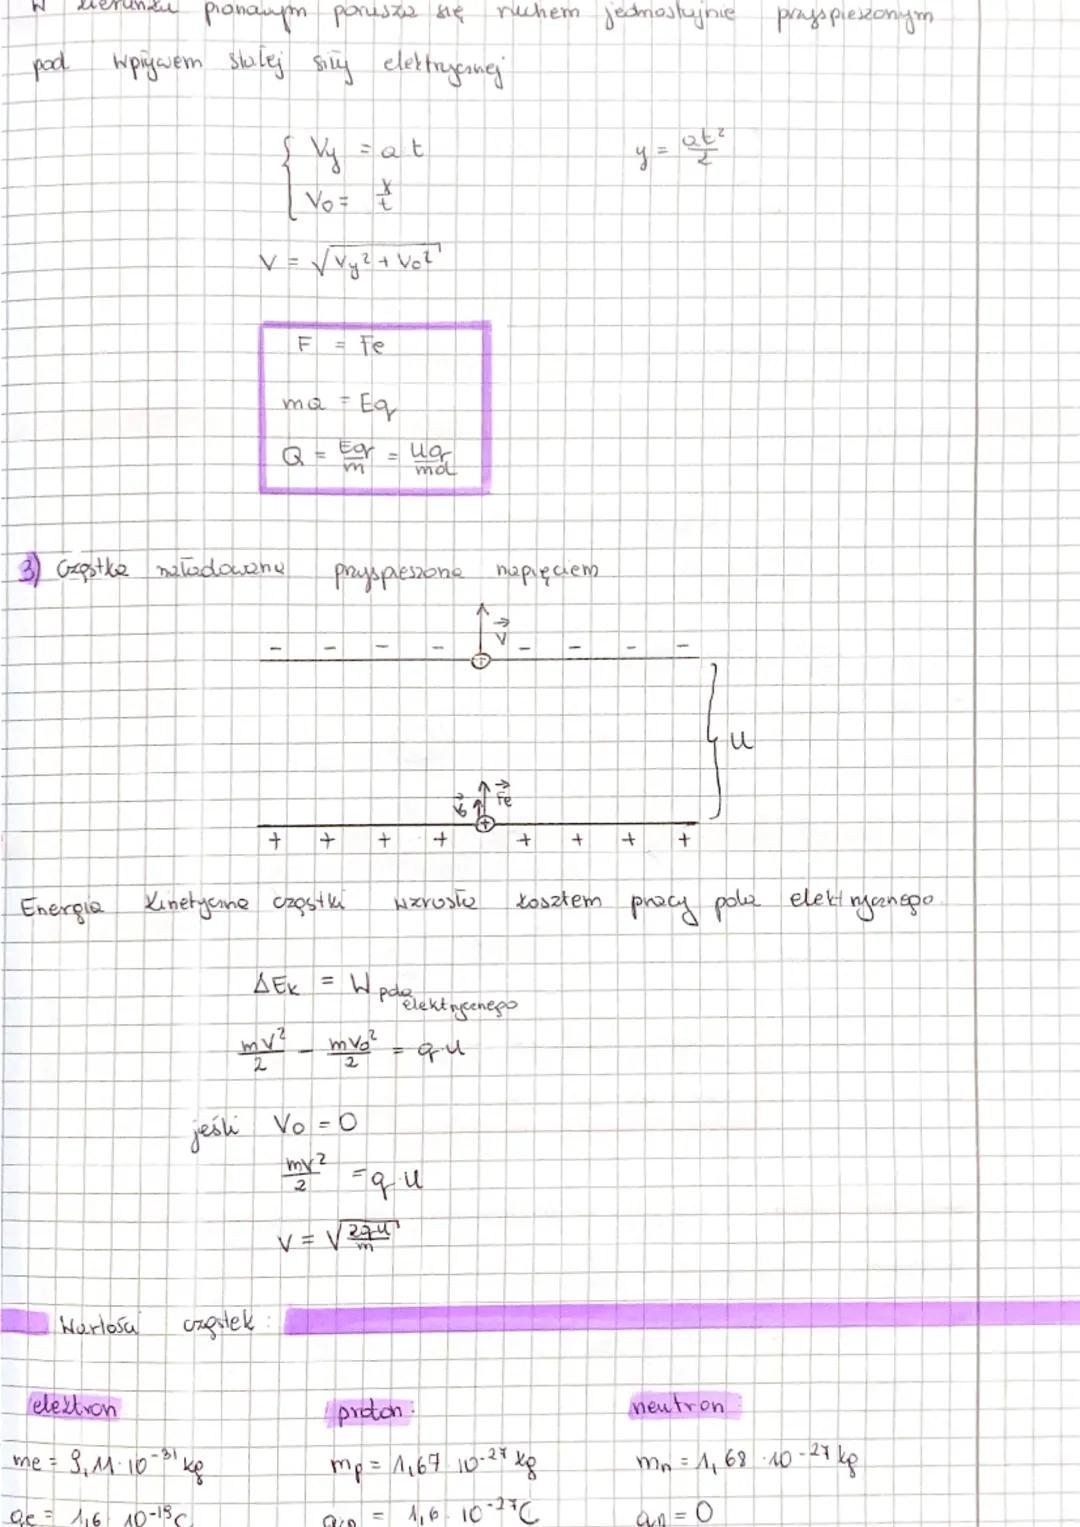 W kierunku pionowym porusza się ruchem jednostajnie przyspieszonym
pod wpływem stałej siły elektrycznej
Vy = at
y = at²/2
V₀ = x/t
V = √(Vy² + V₀²)
F = Fe
ma = Eq
a = Eq/m = Uq/md
3) Cząstka naładowana przyspieszona napięciem
V
- - - - - - - -
+
U
V₀ Fe
+
+ + + + + + + +
Energia kinetyczna cząstki wzrosła kosztem pracy pola elektrycznego.
ΔEk = W pola elektrycznego
mv²/2 - mv₀²/2 = q·U
jeśli V₀ = 0
mv²/2 = q·U
V = √(2qU/m)
Wartości cząstek:
elektron proton: neutron:
me = 9,11·10⁻³¹ kg mp = 1,67·10⁻²⁷ kg mn = 1,68·10⁻²⁷ kg
qe = 1,6·10⁻¹⁹C qp = 1,6·10⁻²⁷C qn = 0